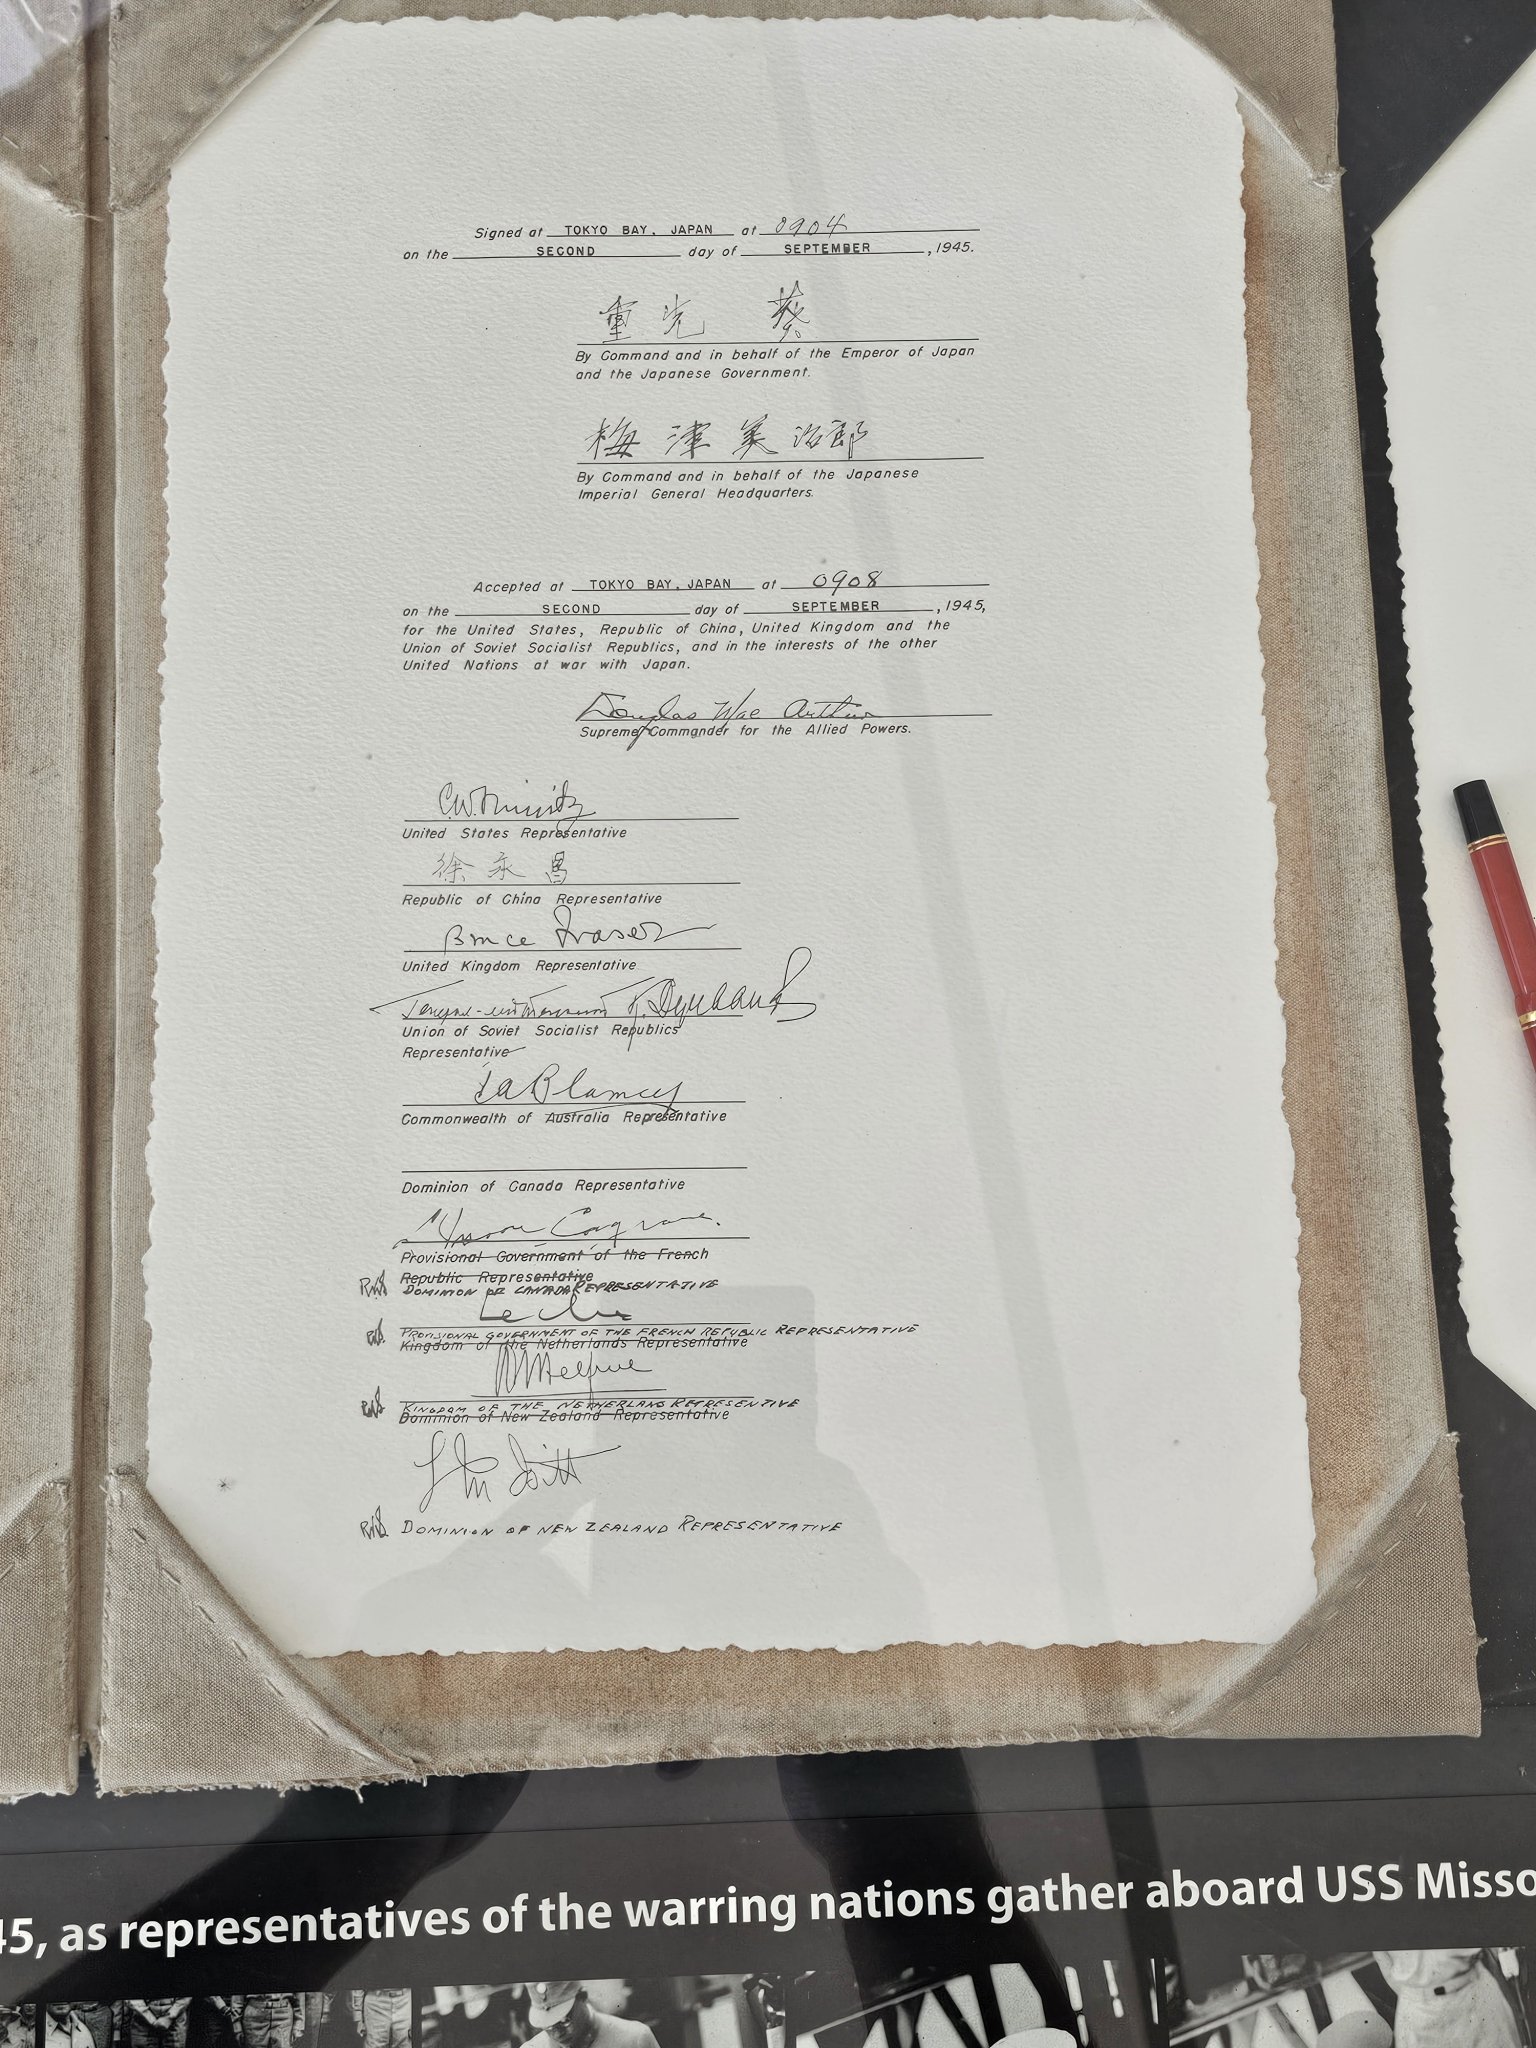 Signed at TOKYO BAY, JAPAN at 0904
on the SECOND day of SEPTEMBER, 1945.
重光 葵
By Command and in behalf of the Emperor of Japan
and the Japanese Government.
梅津美治郎
By Command and in behalf of the Japanese
Imperial General Headquarters.
Accepted at TOKYO BAY, JAPAN at 0908
on the SECOND day of SEPTEMBER, 1945,
for the United States, Republic of China, United Kingdom and the
Union of Soviet Socialist Republics, and in the interests of the other
United Nations at war with Japan.
Douglas MacArthur
Supreme Commander for the Allied Powers.
C.W. Nimitz
United States Representative
徐永昌
Republic of China Representative
Bruce Fraser
United Kingdom Representative
Union of Soviet Socialist Republics
Representative
T a Blamey
Commonwealth of Australia Representative
Dominion of Canada Representative
Moore Cosgrave.
Provisional Government of the French
Republic Representative
DOMINION OF CANADA REPRESENTATIVE
Le Clerc
PROVISIONAL GOVERNMENT OF THE FRENCH REPUBLIC REPRESENTATIVE
Kingdom of the Netherlands Representative
Helfrich
KINGDOM OF THE NETHERLAND REPRESENTIVE
Dominion of New Zealand Representative
L M Isitt
DOMINION OF NEW ZEALAND REPRESENTATIVE
45, as representatives of the warring nations gather aboard USS Misso